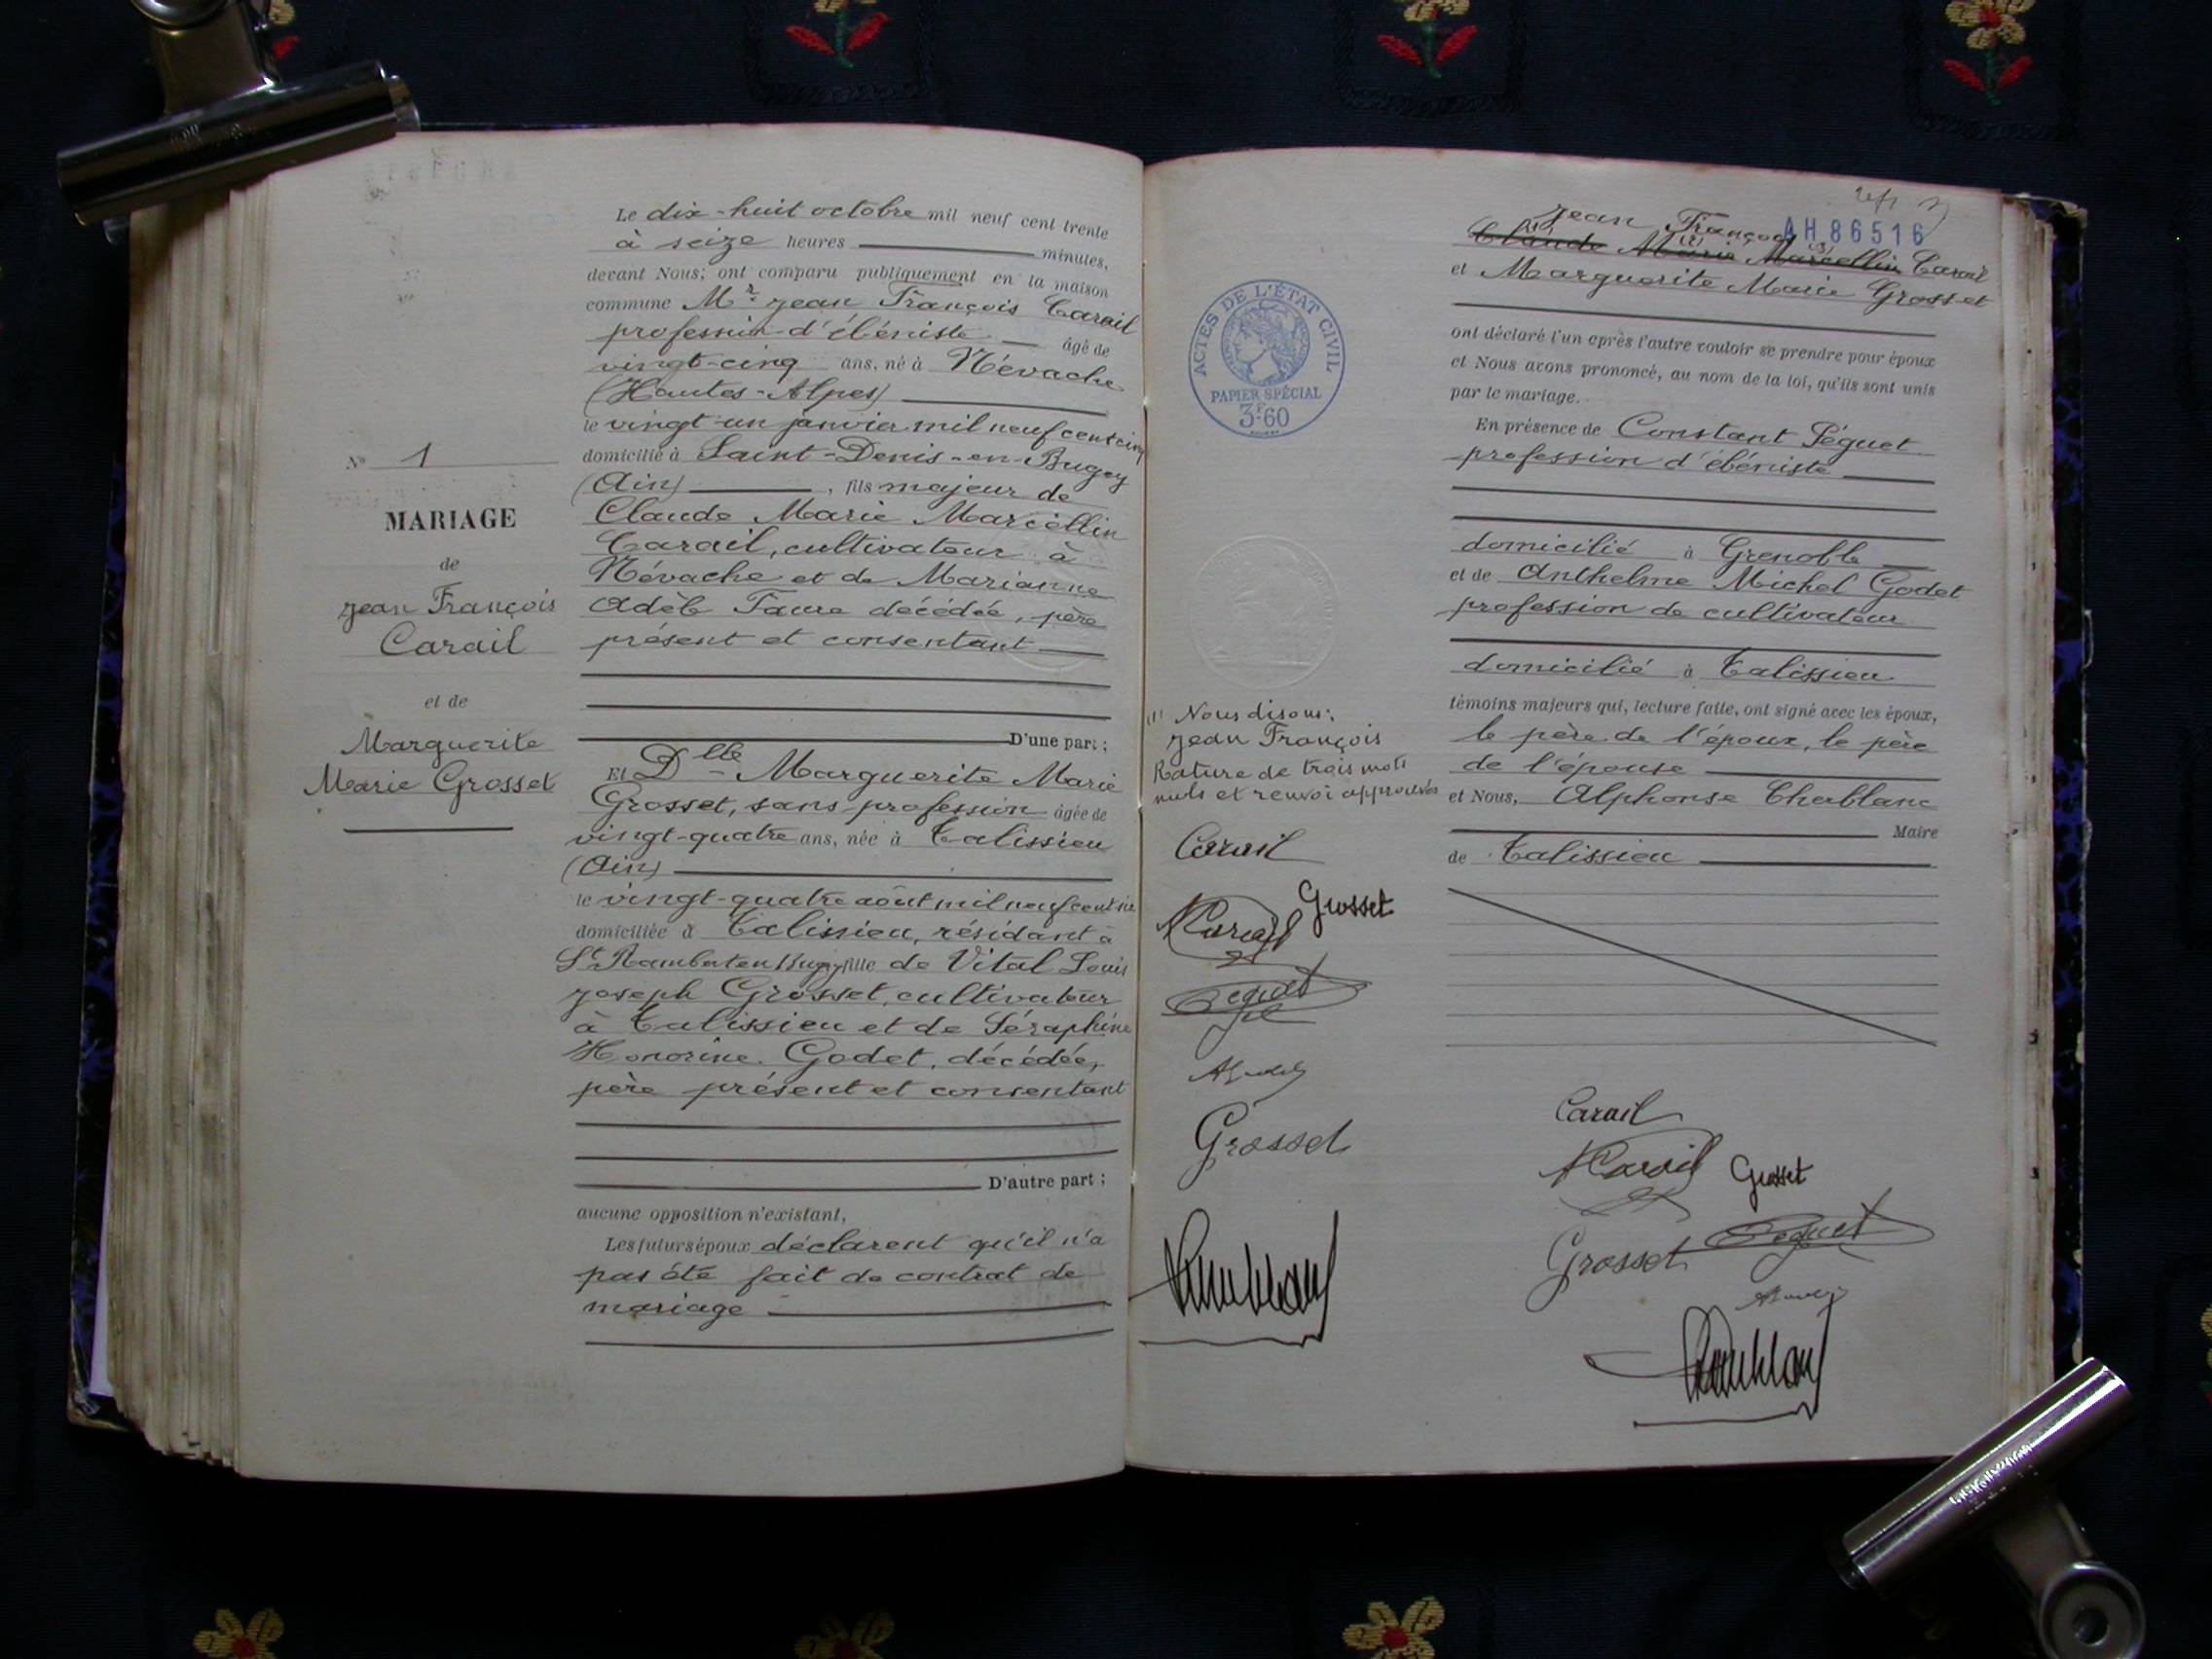 Le dix-huit octobre mil neuf cent trente
à seize heures minutes,
devant Nous; ont comparu publiquement en la maison
commune Mr. Jean François Carail
profession d'ébéniste âgé de
vingt-cinq ans, né à Névache
(Hautes-Alpes)
le vingt-un janvier mil neuf cent cinq
domicilié à Saint-Denis-en-Bugey
(Ain), fils majeur de
Claude Marie Marcellin
Carail, cultivateur à
Névache et de Marianne
Adèle Faure décédée, père
présent et consentant
D'une part;
No 1
MARIAGE
de
Jean François
Carail
et de
Marguerite
Marie Grosset
Et Dlle Marguerite Marie
Grosset, sans profession âgée de
vingt-quatre ans, née à Talissieu
(Ain)
le vingt-quatre août mil neuf cent six
domiciliée à Talissieu, résidant à
St Rambert en Bugey fille de Vital Louis
Joseph Grosset, cultivateur
à Talissieu et de Séraphine
Honorine Godet, décédée,
père présent et consentant
D'autre part;
aucune opposition n'existant,
Les futurs époux déclarent qu'il n'a
pas été fait de contrat de
mariage
ACTES DE L'ÉTAT CIVIL
PAPIER SPÉCIAL
3F60
(1) Nous disons:
Jean François
Rature de trois mots
nuls et renvoi approuvés
Carail
Carail
Grosset
Péguet
Grosset
AH 86516
Jean François
Claude (1) Marie (2) Marcellin (3) Carail
et Marguerite Marie Grosset
ont déclaré l'un après l'autre vouloir se prendre pour époux
et Nous avons prononcé, au nom de la loi, qu'ils sont unis
par le mariage.
En présence de Constant Péguet
profession d'ébéniste
domicilié à Grenoble
et de Anthelme Michel Godet
profession de cultivateur
domicilié à Talissieu
témoins majeurs qui, lecture faite, ont signé avec les époux,
le père de l'époux, le père
de l'épouse
et Nous, Alphonse Chablanc
Maire
de Talissieu
Carail
Carail
Grosset
Grosset
Péguet